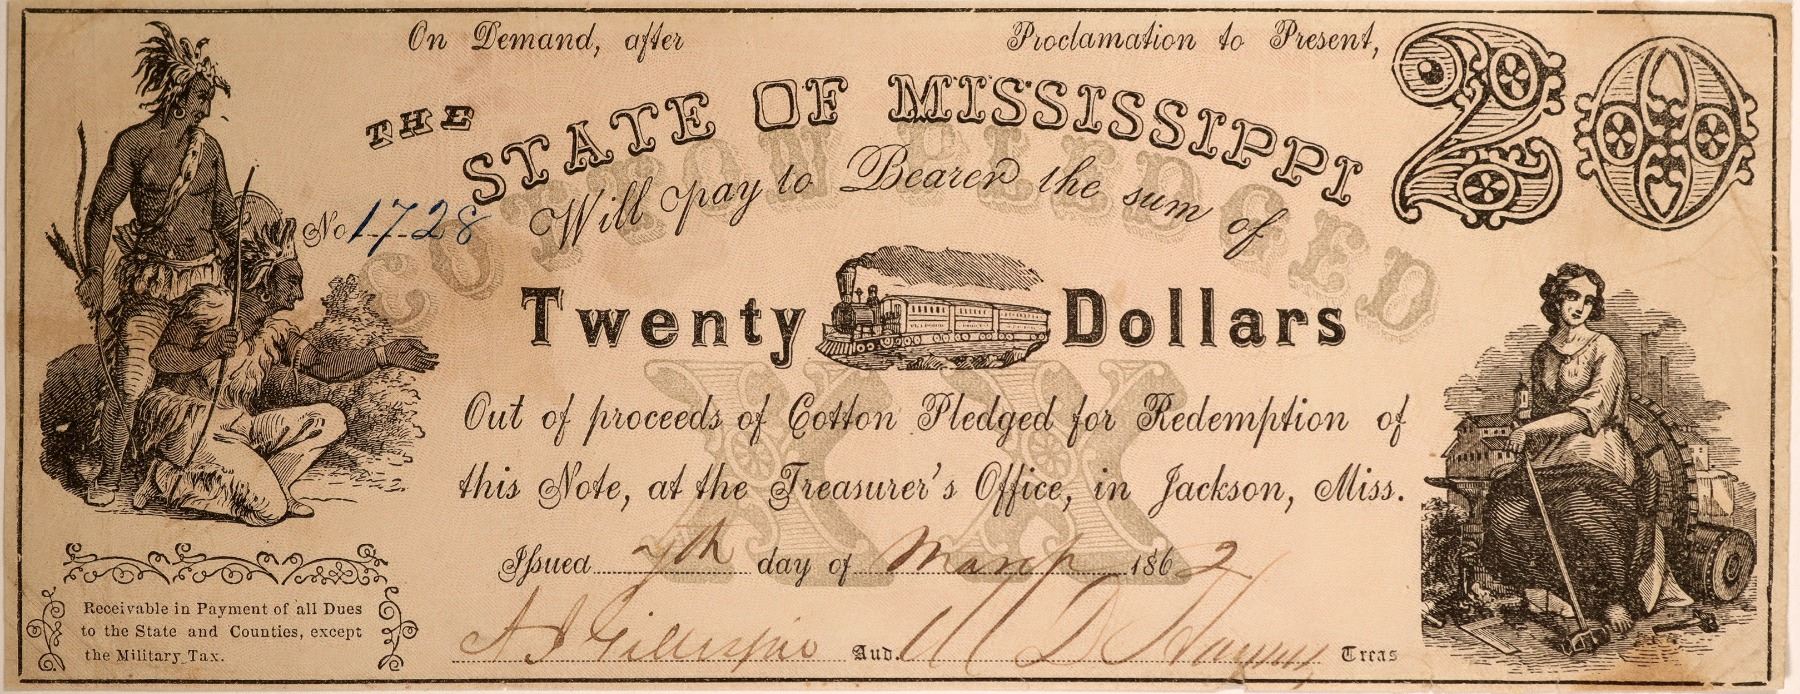 On Demand, after Proclamation to Present,
THE STATE OF MISSISSIPPI
20
No 1728
Will pay to Bearer the sum of
COTTON PLEDGED
Twenty Dollars
XX
Out of proceeds of Cotton Pledged for Redemption of
this Note, at the Treasurer's Office, in Jackson, Miss.
Issued 7th day of March 1862
Receivable in Payment of all Dues
to the State and Counties, except
the Military Tax.
A J Gillespie Aud. M D Haynes Treas